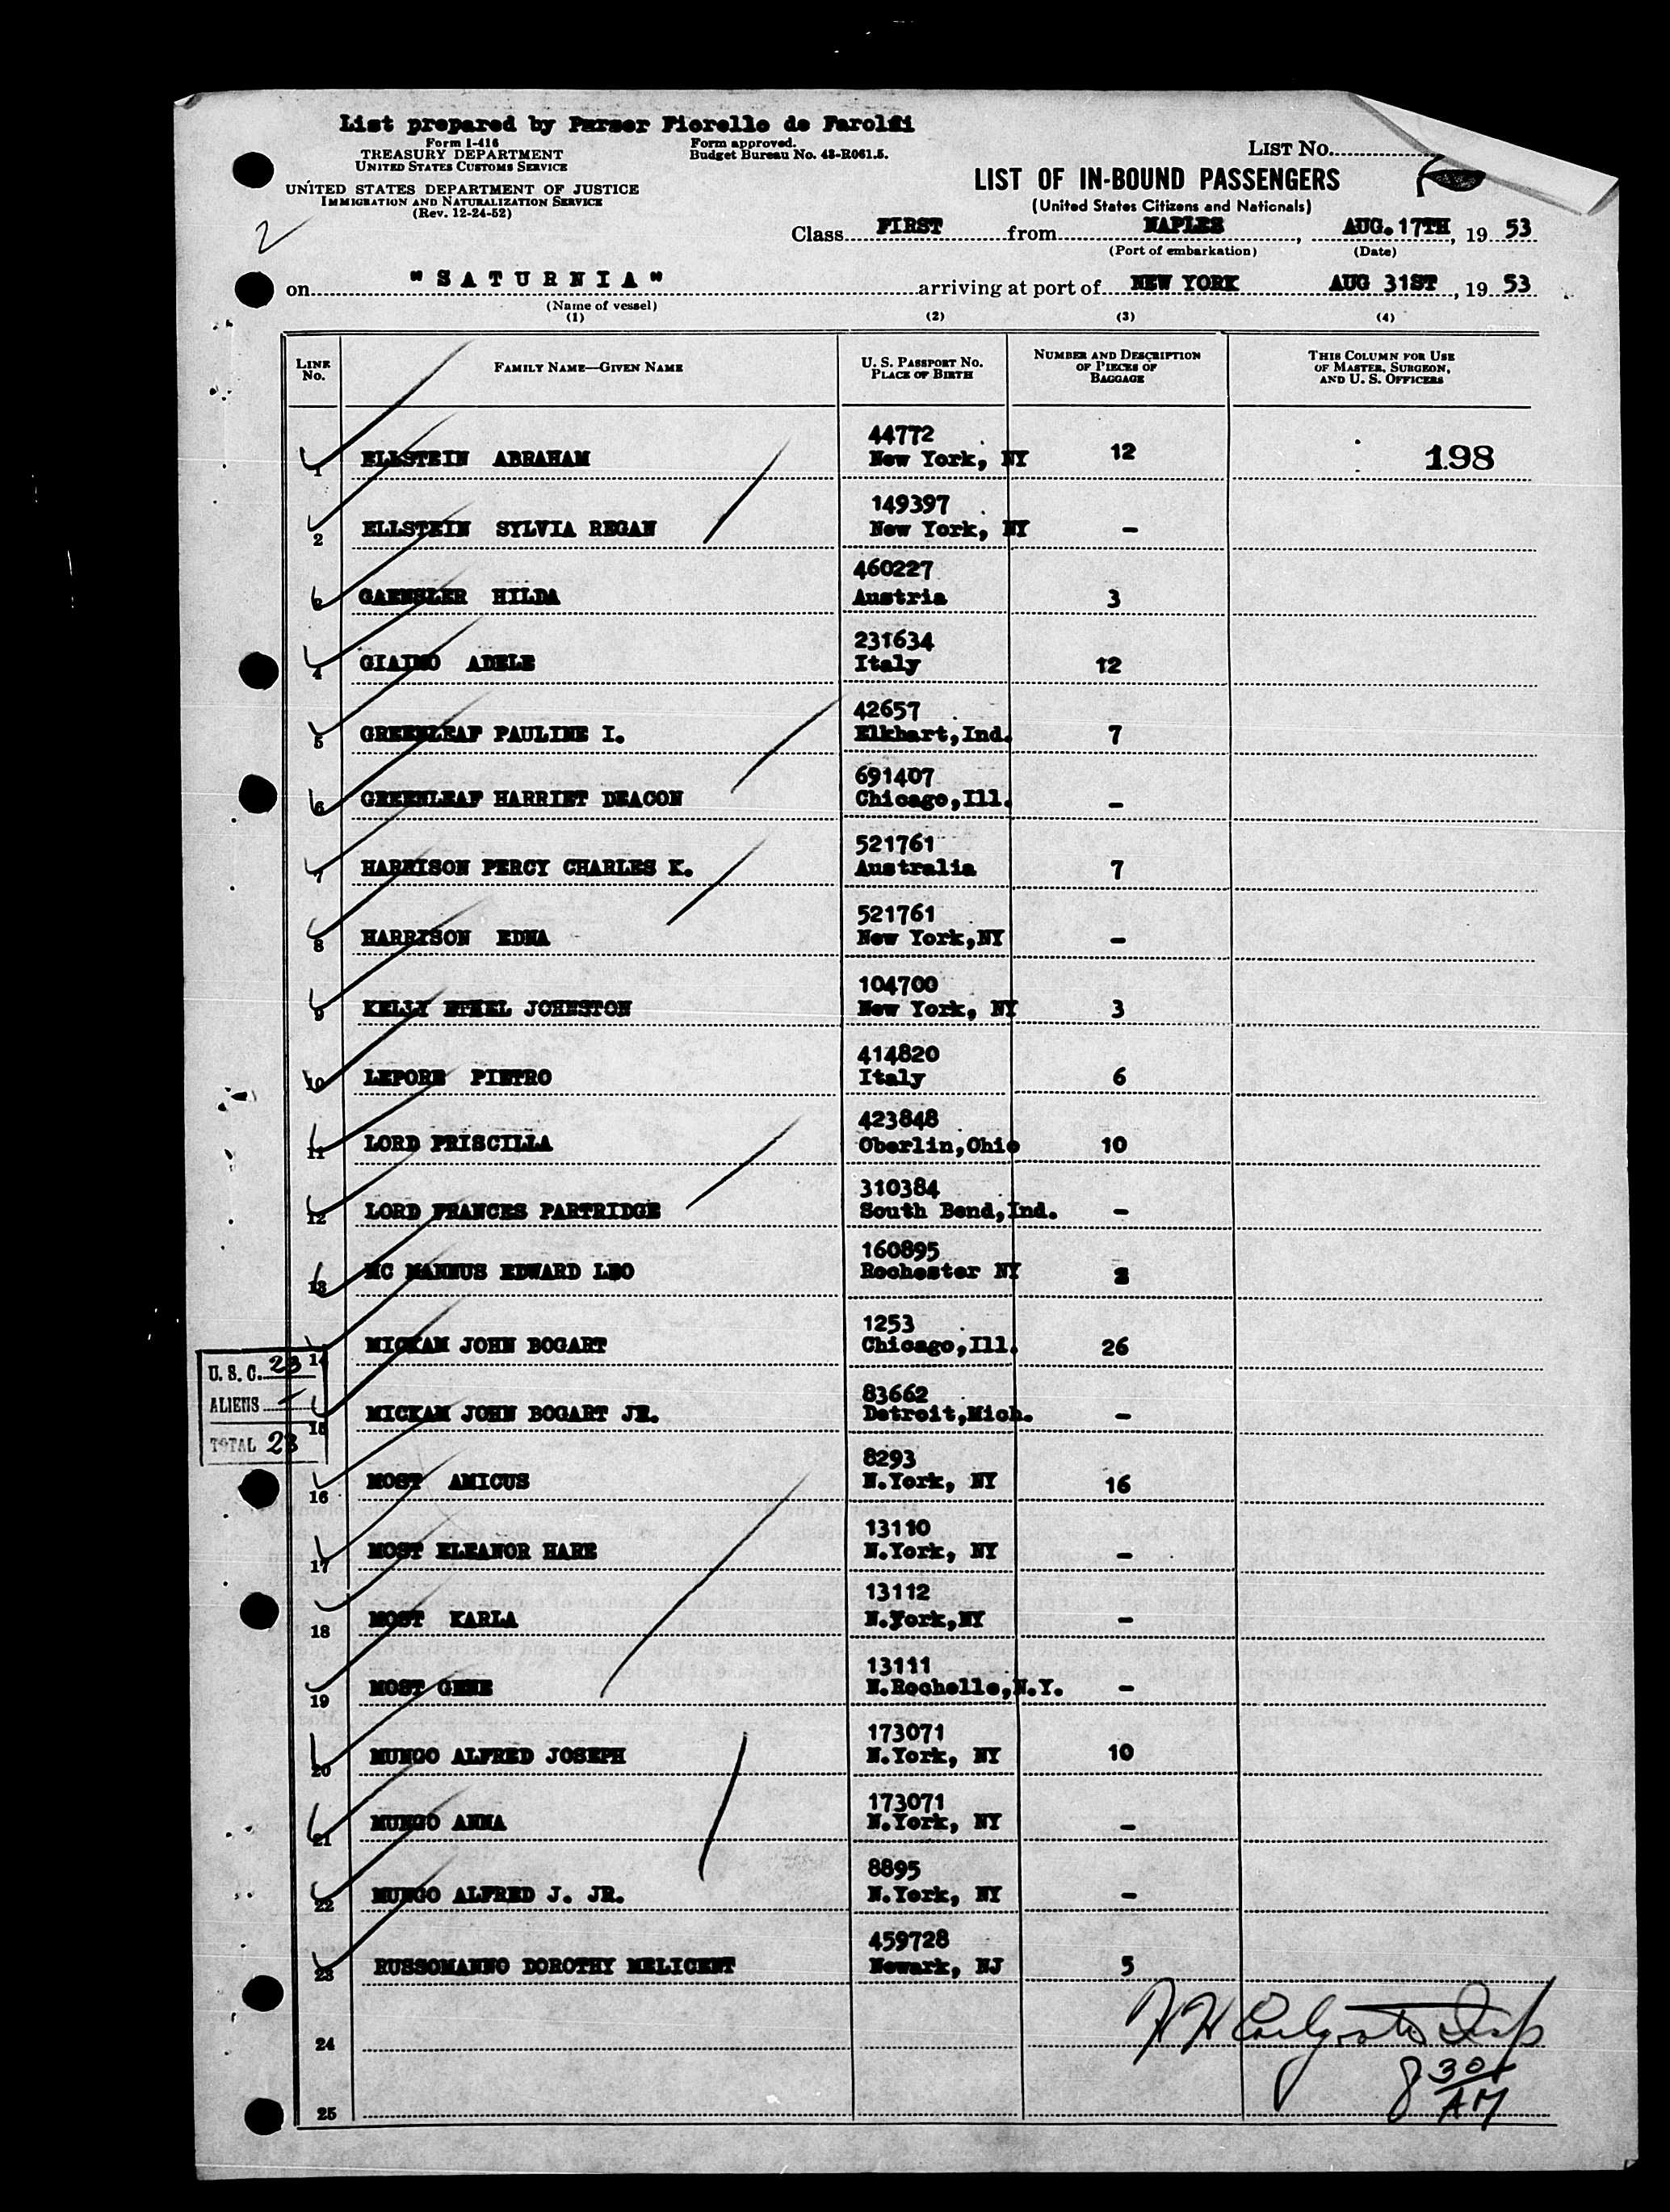 List prepared by Purser Fiorello de Farolfi
Form I-416
TREASURY DEPARTMENT
UNITED STATES CUSTOMS SERVICE
Form approved.
Budget Bureau No. 43-R061.5.
UNITED STATES DEPARTMENT OF JUSTICE
IMMIGRATION AND NATURALIZATION SERVICE
(Rev. 12-24-52)
2
LIST NO.
LIST OF IN-BOUND PASSENGERS
(United States Citizens and Nationals)
Class FIRST from NAPLES, AUG. 17TH, 19 53
(Port of embarkation) (Date)
on "SATURNIA" arriving at port of NEW YORK AUG 31ST, 19 53
(Name of vessel)
(1) (2) (3) (4)
LINE No. FAMILY NAME—GIVEN NAME U. S. PASSPORT NO. PLACE OF BIRTH NUMBER AND DESCRIPTION OF PIECES OF BAGGAGE THIS COLUMN FOR USE OF MASTER, SURGEON, AND U. S. OFFICERS
44772
1 ELLSTEIN ABRAHAM New York, NY 12 198
149397
2 ELLSTEIN SYLVIA REGAN New York, NY -
460227
3 GAENSLER HILDA Austria 3
231634
4 GIAIMO ADELE Italy 12
42657
5 GREENLEAF PAULINE I. Elkhart, Ind. 7
691407
6 GREENLEAF HARRIET DEACON Chicago, Ill. -
521761
7 HARRISON PERCY CHARLES K. Australia 7
521761
8 HARRISON EDNA New York, NY -
104700
9 KELLY ETHEL JOHNSTON New York, NY 3
414820
10 LEPORE PIETRO Italy 6
423848
11 LORD PRISCILLA Oberlin, Ohio 10
310384
12 LORD FRANCES PARTRIDGE South Bend, Ind. -
160895
13 MC MANNUS EDWARD LEO Rochester NY
1253
14 MICKAM JOHN BOGART Chicago, Ill. 26
83662
15 MICKAM JOHN BOGART JR. Detroit, Mich. -
8293
16 MOST AMICUS N.York, NY 16
13110
17 MOST ELEANOR HARE N.York, NY -
13112
18 MOST KARLA N.York, NY -
13111
19 MOST GENE N.Rochelle, N.Y. -
173071
20 MUNGO ALFRED JOSEPH N.York, NY 10
173071
21 MUNGO ANNA N.York, NY -
8895
22 MUNGO ALFRED J. JR. N.York, NY -
459728
23 RUSSOMANNO DOROTHY MELICENT Newark, NJ 5
24
25
U. S. C. 23
ALIENS -
TOTAL 23
8 30 AM